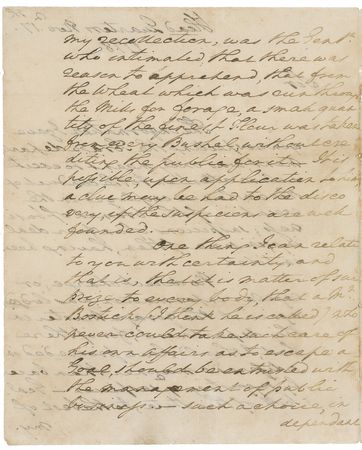 my recollection, was the
who intimated that there was
reason to apprehend, that from
the Wheat which was run through
the Mills for forage a small quan
tity of the fine Flour was taken
from every Bushel, without cre
diting the public for it. — It is
possible, upon application to him
a clue may be had to the disco
very, if the suspicions are well
founded. —
One thing I can relate
to you with certainty, and
that is, that it is matter of sur
prize to every body, that a Mr.
Bostick, (I think he is called) who
never could take such care of
his own affairs as to escape a
Goal, should be entrusted with
the management of public
business — such a choice, in
dependant